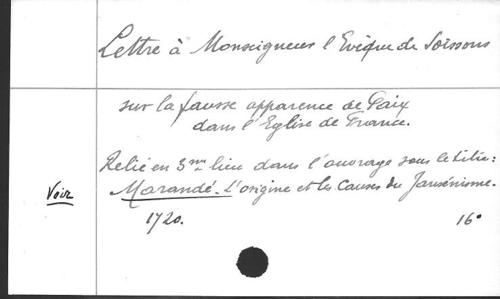 Lettre à Monseigneur l'Evêque de Soissons
sur la fausse apparence de Paix
dans l'Eglise de France.
Relié en 3me lieu dans l'ouvrage sous le titre:
Voir Marandé. L'origine et les Causes du Jansénisme.
1720. 16°